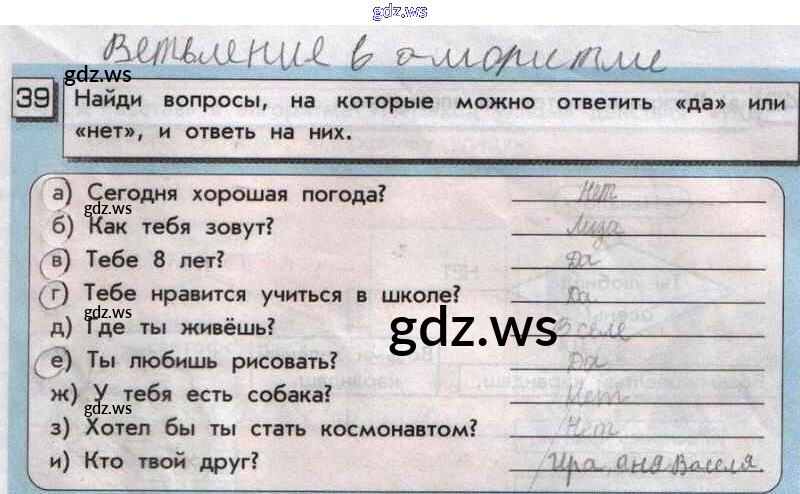 gdz.ws
Ветвление в
gdz.ws
39 Найди вопросы, на которые можно ответить «да» или
«нет», и ответь на них.
а) Сегодня хорошая погода? Нет
gdz.ws
б) Как тебя зовут? Лиза
в) Тебе 8 лет? Да
г) Тебе нравится учиться в школе? Да
gdz.ws
д) Где ты живёшь? В селе
gdz.ws
е) Ты любишь рисовать? Да
ж) У тебя есть собака? Нет
gdz.ws
з) Хотел бы ты стать космонавтом? Нет
и) Кто твой друг? Ира аня Васеля.
gdz.ws
gdz.ws